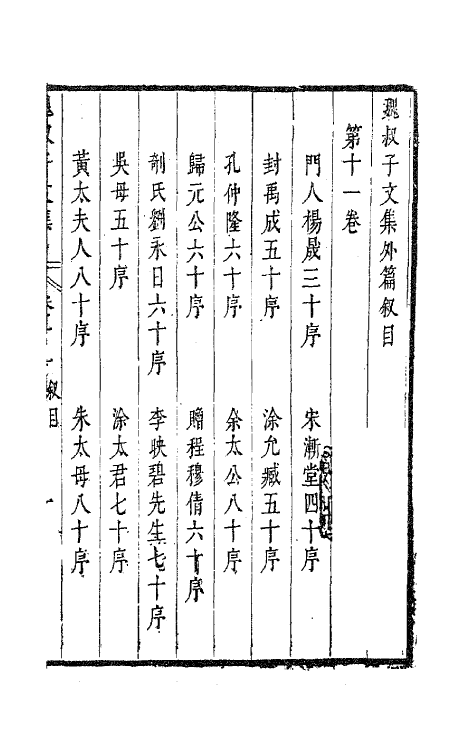 魏叔子文集外篇叙目
第十一卷
門人楊晟三十序 宋漸堂四十序
封禹成五十序 涂允臧五十序
孔仲隆六十序 余太公八十序
歸元公六十序 贈程穆倩六十序
制氏劉永日六十序 李映碧先生七十序
吳母五十序 涂太君七十序
黃太夫人八十序 朱太母八十序
魏叔子文集 卷十一 叙目 一